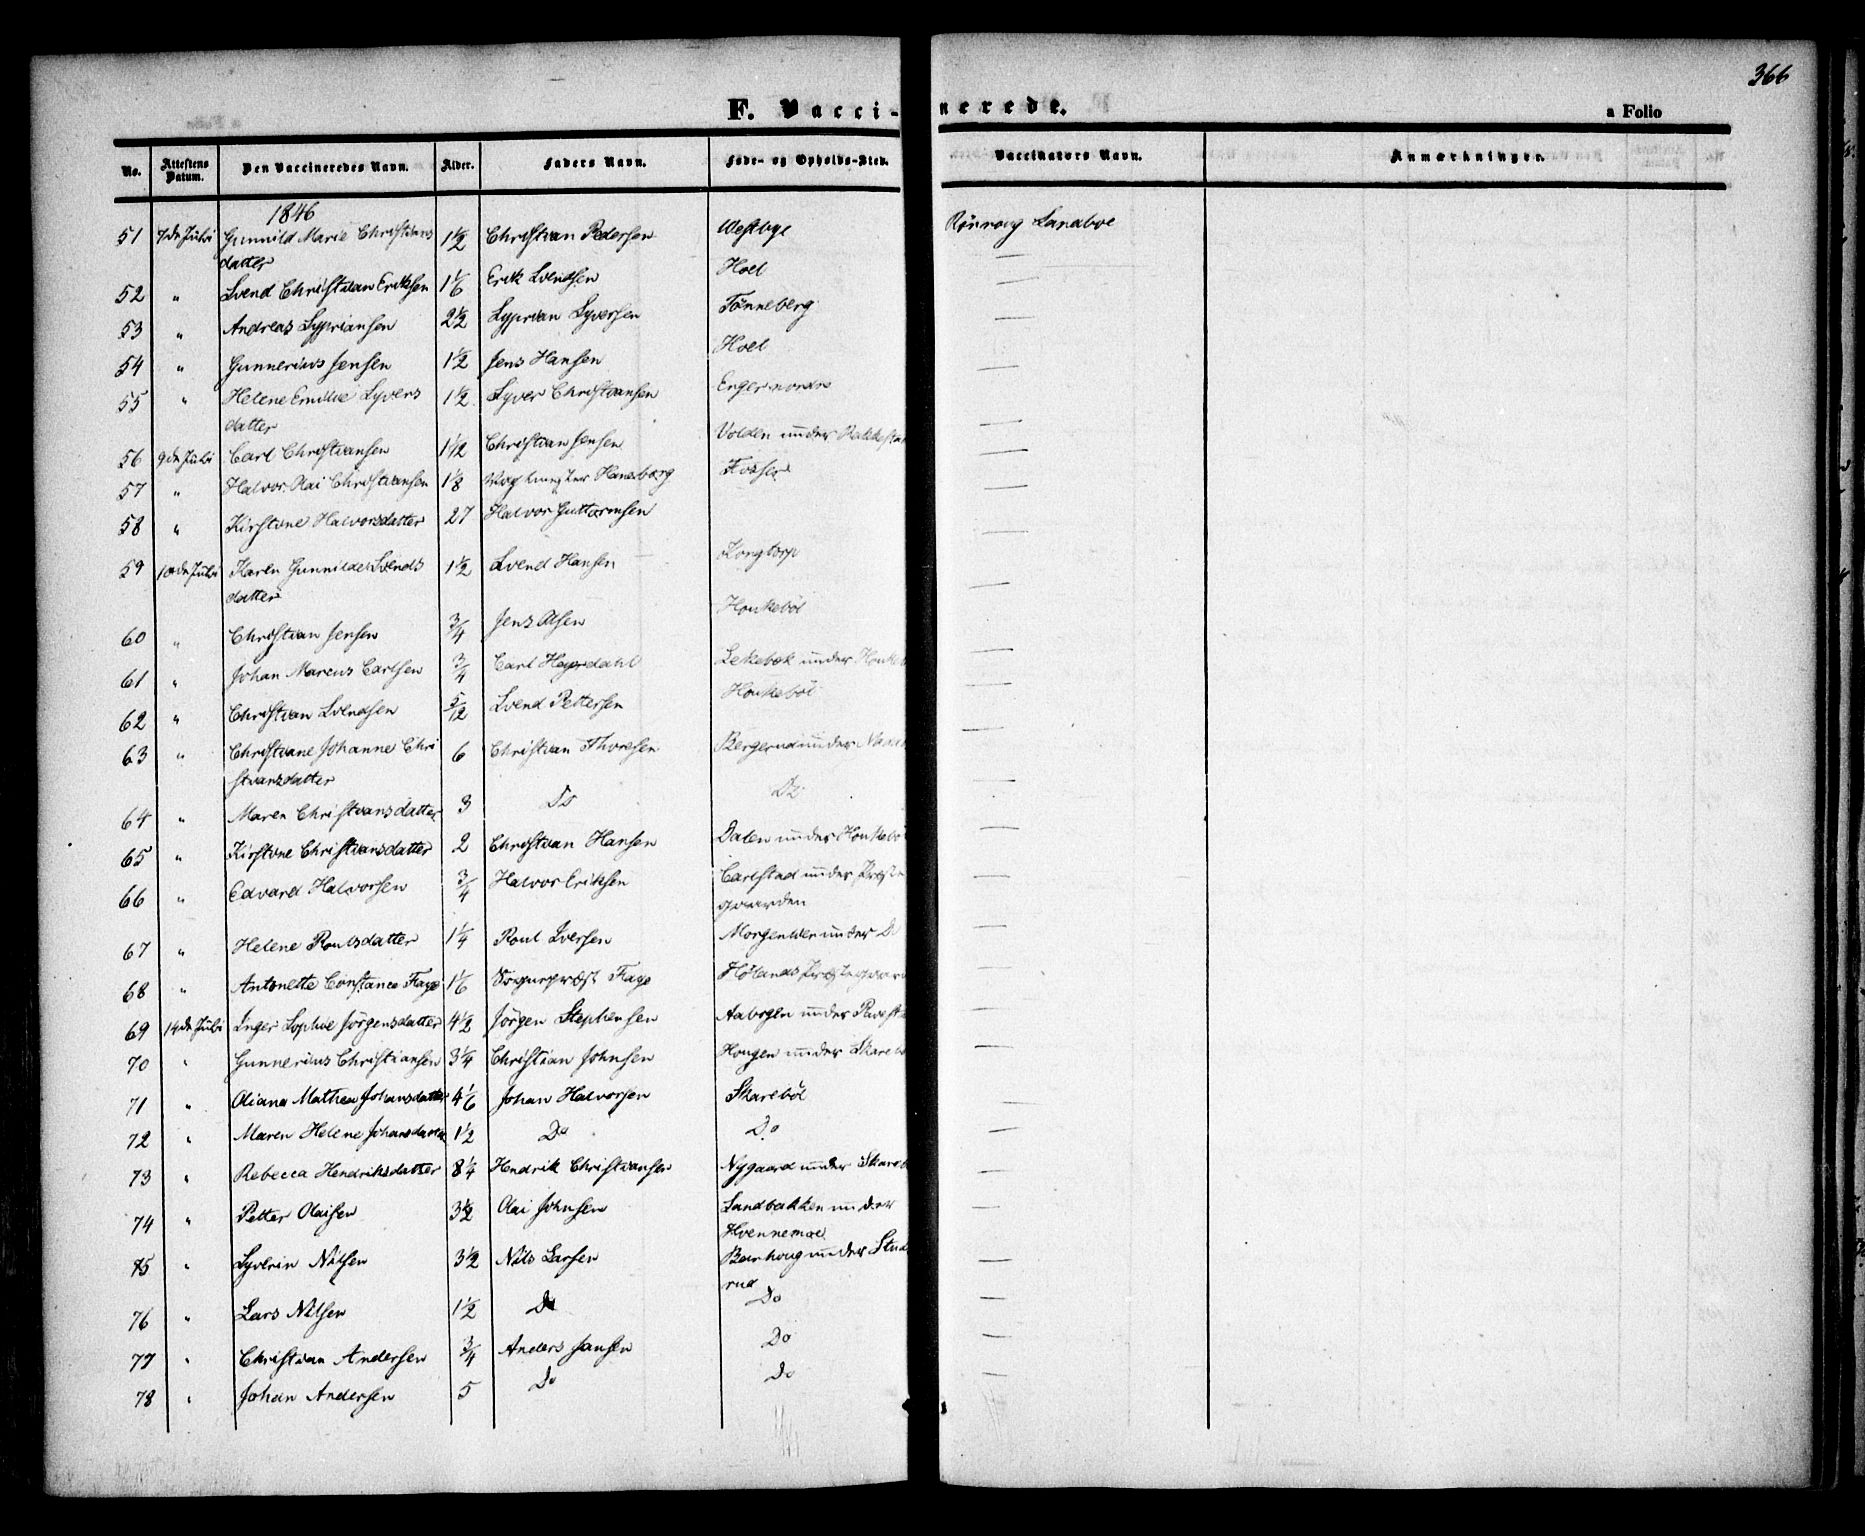 366
F. Vaccinerede.
a Folio
No. Attestens Datum. Den Vaccineredes Navn. Alder. Faders Navn. Føde- og Opholds-Sted. Vaccinators Navn. Anmærkninger.
1846
51 7de Juli Gunnild Marie Christians 1 1/2 Christian Pedersen Westbye Rønnaug Sandboe
datter
52 " Svend Christian Eriksen 1 1/6 Erik Svendsen Hoel —
53 " Andreas Sypriansen 2 1/2 Syprian Syversen Tønneberg —
54 " Gunnerius Jensen 1 1/2 Jens Hansen Hoel —
55 " Helene Emilie Syvers 1 1/2 Syver Christiansen Enger nordre —
datter
56 9de Juli Carl Christiansen 1 1/12 Christian Jensen Volden under —
57 " Halvor Olai Christiansen 1 1/8 Hansborg Fosser —
58 " Kirstine Halvorsdatter 27 Halvor Guttormsen —
59 10de Juli Karen Gunnilde Svends 1 1/2 Svend Hansen Kongtorp —
datter
60 " Christian Jensen 3/4 Jens Olsen Honkeböl —
61 " Johan Marcus Carlsen 3/4 Carl under —
62 " Christian Svendsen 5/12 Svend Pettersen Honkeböl —
63 " Christiane Johanne Chri 6 Christian Thoresen Bergerud under —
stiansdatter
64 " Maren Christiansdatter 3 Do Do —
65 " Kirstine Christiansdatter 2 Christian Hansen Dalen under Honkeböl —
66 " Edvard Halvorsen 3/4 Halvor Eriksen Carlstad under Præste —
gaarden
67 " Helene Roulsdatter 1 1/4 Roul Iversen Morgenlien under Do —
68 " Antonette Constance Faye 1 1/6 Sogneprest Faye Hølands Præstegaard —
69 14de Juli Inger Sophie Jörgensdatter 4 1/2 Jörgen Stephensen Aabogen under —
70 " Gunnerius Christiansen 3 1/4 Christian Johnsen Hougen under —
71 " Oliana Mathea Johansdatter 4 1/6 Johan Halvorsen Skareböl —
72 " Maren Helene Johansdatter 1 1/2 Do Do —
73 " Rebecca Hendriksdatter 8 1/4 Hendrik Christiansen Nygaard under —
74 " Petter Olaisen 3 1/2 Olai Johnsen Sandbakken under
Hvennemoe
75 " Syverin Nilsen 3 1/2 Nils Larsen under Stud —
rud
76 " Lars Nilsen 1 1/2 Do Do —
77 " Christian Andersen 3/4 Anders Jansen Do —
78 " Johan Andersen 5 Do Do —